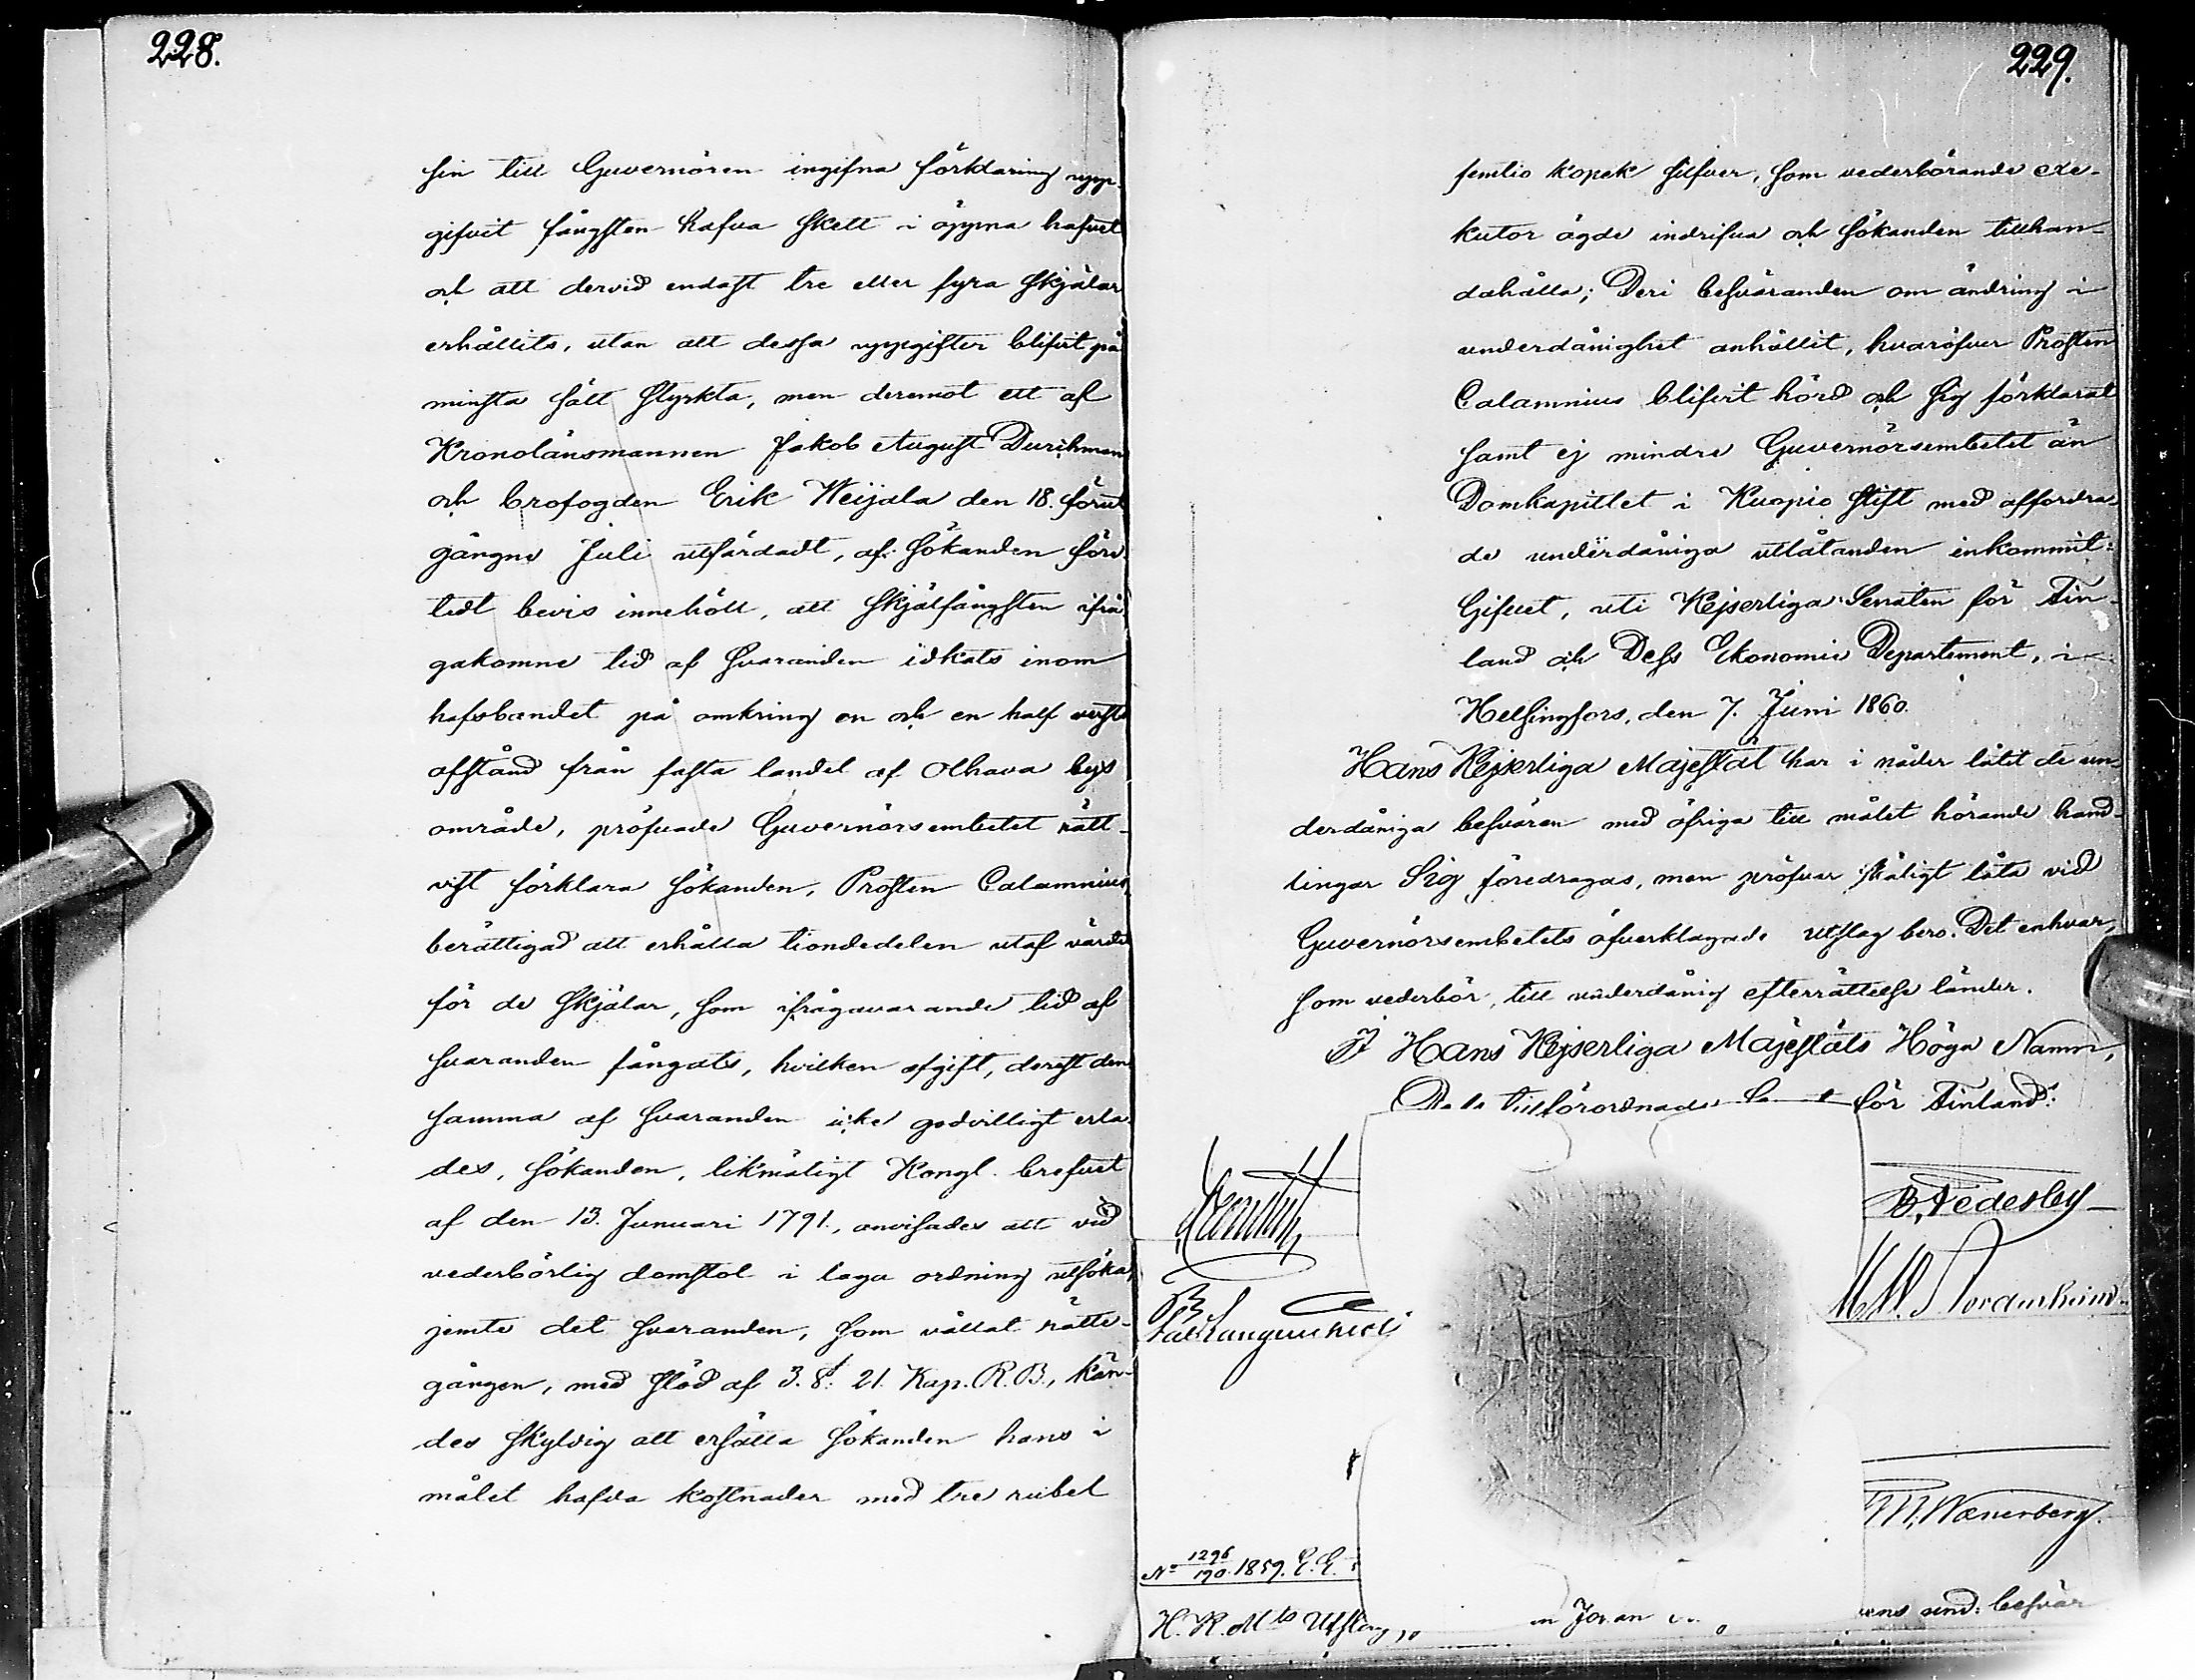 228.
sin till Guvernören ingifna förklaring upp-
gifvit fångsten hafva skett i öppna hafvet
och att dervid endast tre eller fyra skjälar
erhållits, utan att dessa uppgifter blifvit på
minsta sätt styrkta, men deremot ett af
Kronolänsmannen Jakob August Durchman
och brofogden Erik Weijola den 18. förut-
gångne Juli utfärdadt, af sökanden före-
tedt bevis innehöll, att skjälfångsten ifrå-
gakomne tid af svaranden idkats inom
hafsbandet på omkring en och en half versts
afstånd från fasta landet af Olhava bys
område, pröfvade Guvernörsembetet rätt-
vist förklara sökanden, Prosten Calamnius,
berättigad att erhålla tiondedelen utaf värdet
för de skjälar, som ifrågavarande tid af
svaranden fångats, hvilken afgift, derest den-
samma af svaranden icke godvilligt erla-
des, sökanden, likmätigt Kongl. brefvet
af den 13. Januari 1791, anvisades att vid
vederbörlig domstol i laga ordning utsöka,
jemte det svaranden, som vållat rätte-
gången, med stöd af 3. §. 21. Kap. R. B., kän-
des skyldig att ersätta sökanden hans i
målet hafda kostnader med tre rubel
229.
femtio kopek silfver, som vederbörande exe-
kutor ägde indrifva och sökanden tillhan-
dahålla; Deri besväranden om ändring i
underdånighet anhållit, hvaröfver Prosten
Calamnius blifvit hörd och sig förklarat
samt ej mindre Guvernörsembetet än
Domkapitlet i Kuopio stift med affordra-
de underdåniga utlåtanden inkommit:
Gifvet, uti Kejserliga Senaten för Fin-
land och Dess Ekonomie Departement, i
Helsingfors, den 7. Juni 1860.
Hans Kejserliga Majestät har i nåder låtit de un-
derdåniga besvären med öfriga till målet hörande hand-
lingar Sig föredragas, men pröfvar skäligt låta vid
Guvernörsembetets öfverklagade utslag bero. Det enhvar,
som vederbör, till underdånig efterrättelse länder.
I Hans Kejserliga Majestäts Höga Namn,
tillförordnade för Finland:
B. Federley
Falck
M. Wænerberg.
No 1296/190 1859. E. E.
H. K. Mts Utslag
Johan
ens und: besvär